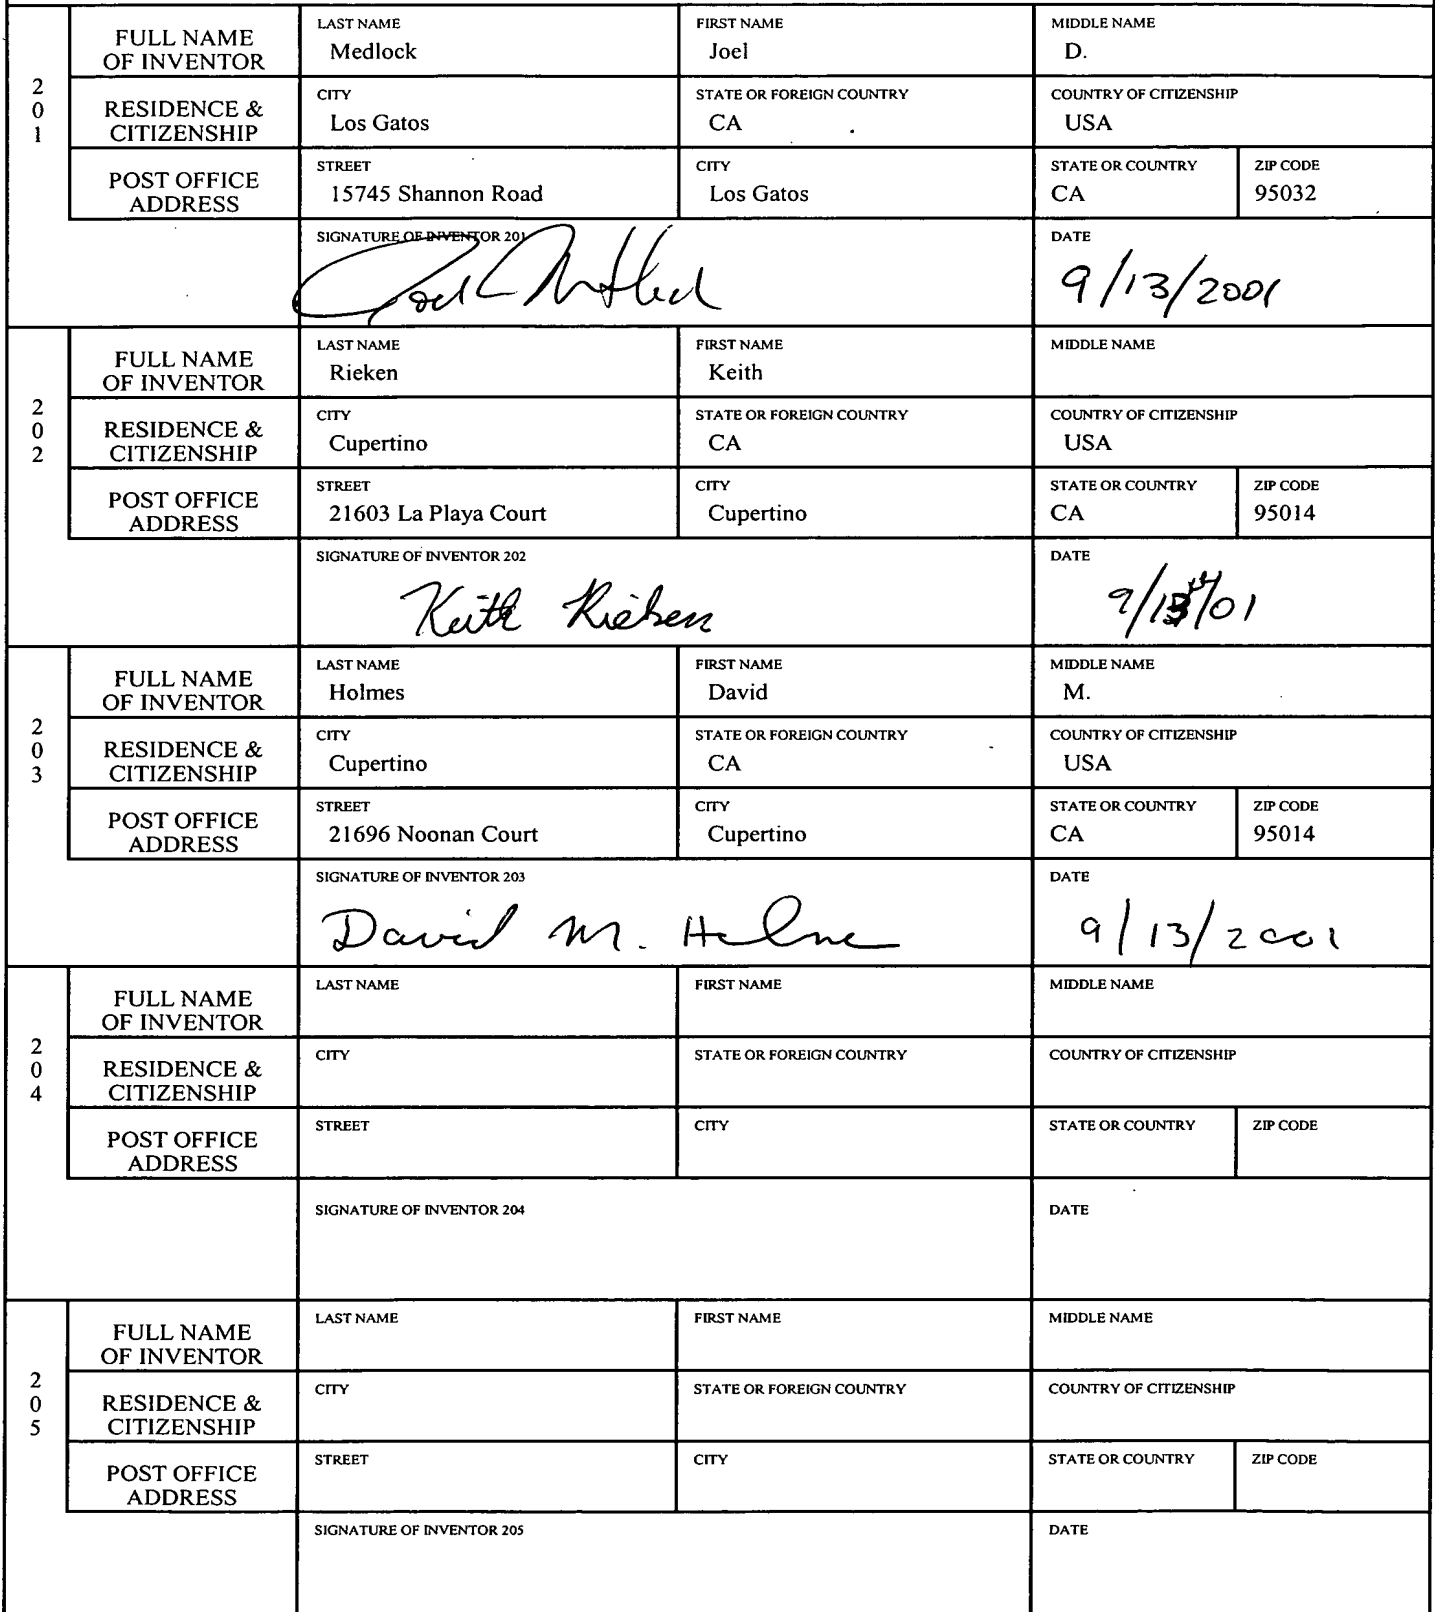 201
FULL NAME OF INVENTOR
LAST NAME Medlock
FIRST NAME Joel
MIDDLE NAME D.
RESIDENCE & CITIZENSHIP
CITY Los Gatos
STATE OR FOREIGN COUNTRY CA
COUNTRY OF CITIZENSHIP USA
POST OFFICE ADDRESS
STREET 15745 Shannon Road
CITY Los Gatos
STATE OR COUNTRY CA
ZIP CODE 95032
SIGNATURE OF INVENTOR 201
DATE 9/13/2001
202
FULL NAME OF INVENTOR
LAST NAME Rieken
FIRST NAME Keith
MIDDLE NAME
RESIDENCE & CITIZENSHIP
CITY Cupertino
STATE OR FOREIGN COUNTRY CA
COUNTRY OF CITIZENSHIP USA
POST OFFICE ADDRESS
STREET 21603 La Playa Court
CITY Cupertino
STATE OR COUNTRY CA
ZIP CODE 95014
SIGNATURE OF INVENTOR 202 Keith Rieken
DATE
203
FULL NAME OF INVENTOR
LAST NAME Holmes
FIRST NAME David
MIDDLE NAME M.
RESIDENCE & CITIZENSHIP
CITY Cupertino
STATE OR FOREIGN COUNTRY CA
COUNTRY OF CITIZENSHIP USA
POST OFFICE ADDRESS
STREET 21696 Noonan Court
CITY Cupertino
STATE OR COUNTRY CA
ZIP CODE 95014
SIGNATURE OF INVENTOR 203 David M. Holme
DATE 9/13/2001
204
FULL NAME OF INVENTOR
LAST NAME
FIRST NAME
MIDDLE NAME
RESIDENCE & CITIZENSHIP
CITY
STATE OR FOREIGN COUNTRY
COUNTRY OF CITIZENSHIP
POST OFFICE ADDRESS
STREET
CITY
STATE OR COUNTRY
ZIP CODE
SIGNATURE OF INVENTOR 204
DATE
205
FULL NAME OF INVENTOR
LAST NAME
FIRST NAME
MIDDLE NAME
RESIDENCE & CITIZENSHIP
CITY
STATE OR FOREIGN COUNTRY
COUNTRY OF CITIZENSHIP
POST OFFICE ADDRESS
STREET
CITY
STATE OR COUNTRY
ZIP CODE
SIGNATURE OF INVENTOR 205
DATE